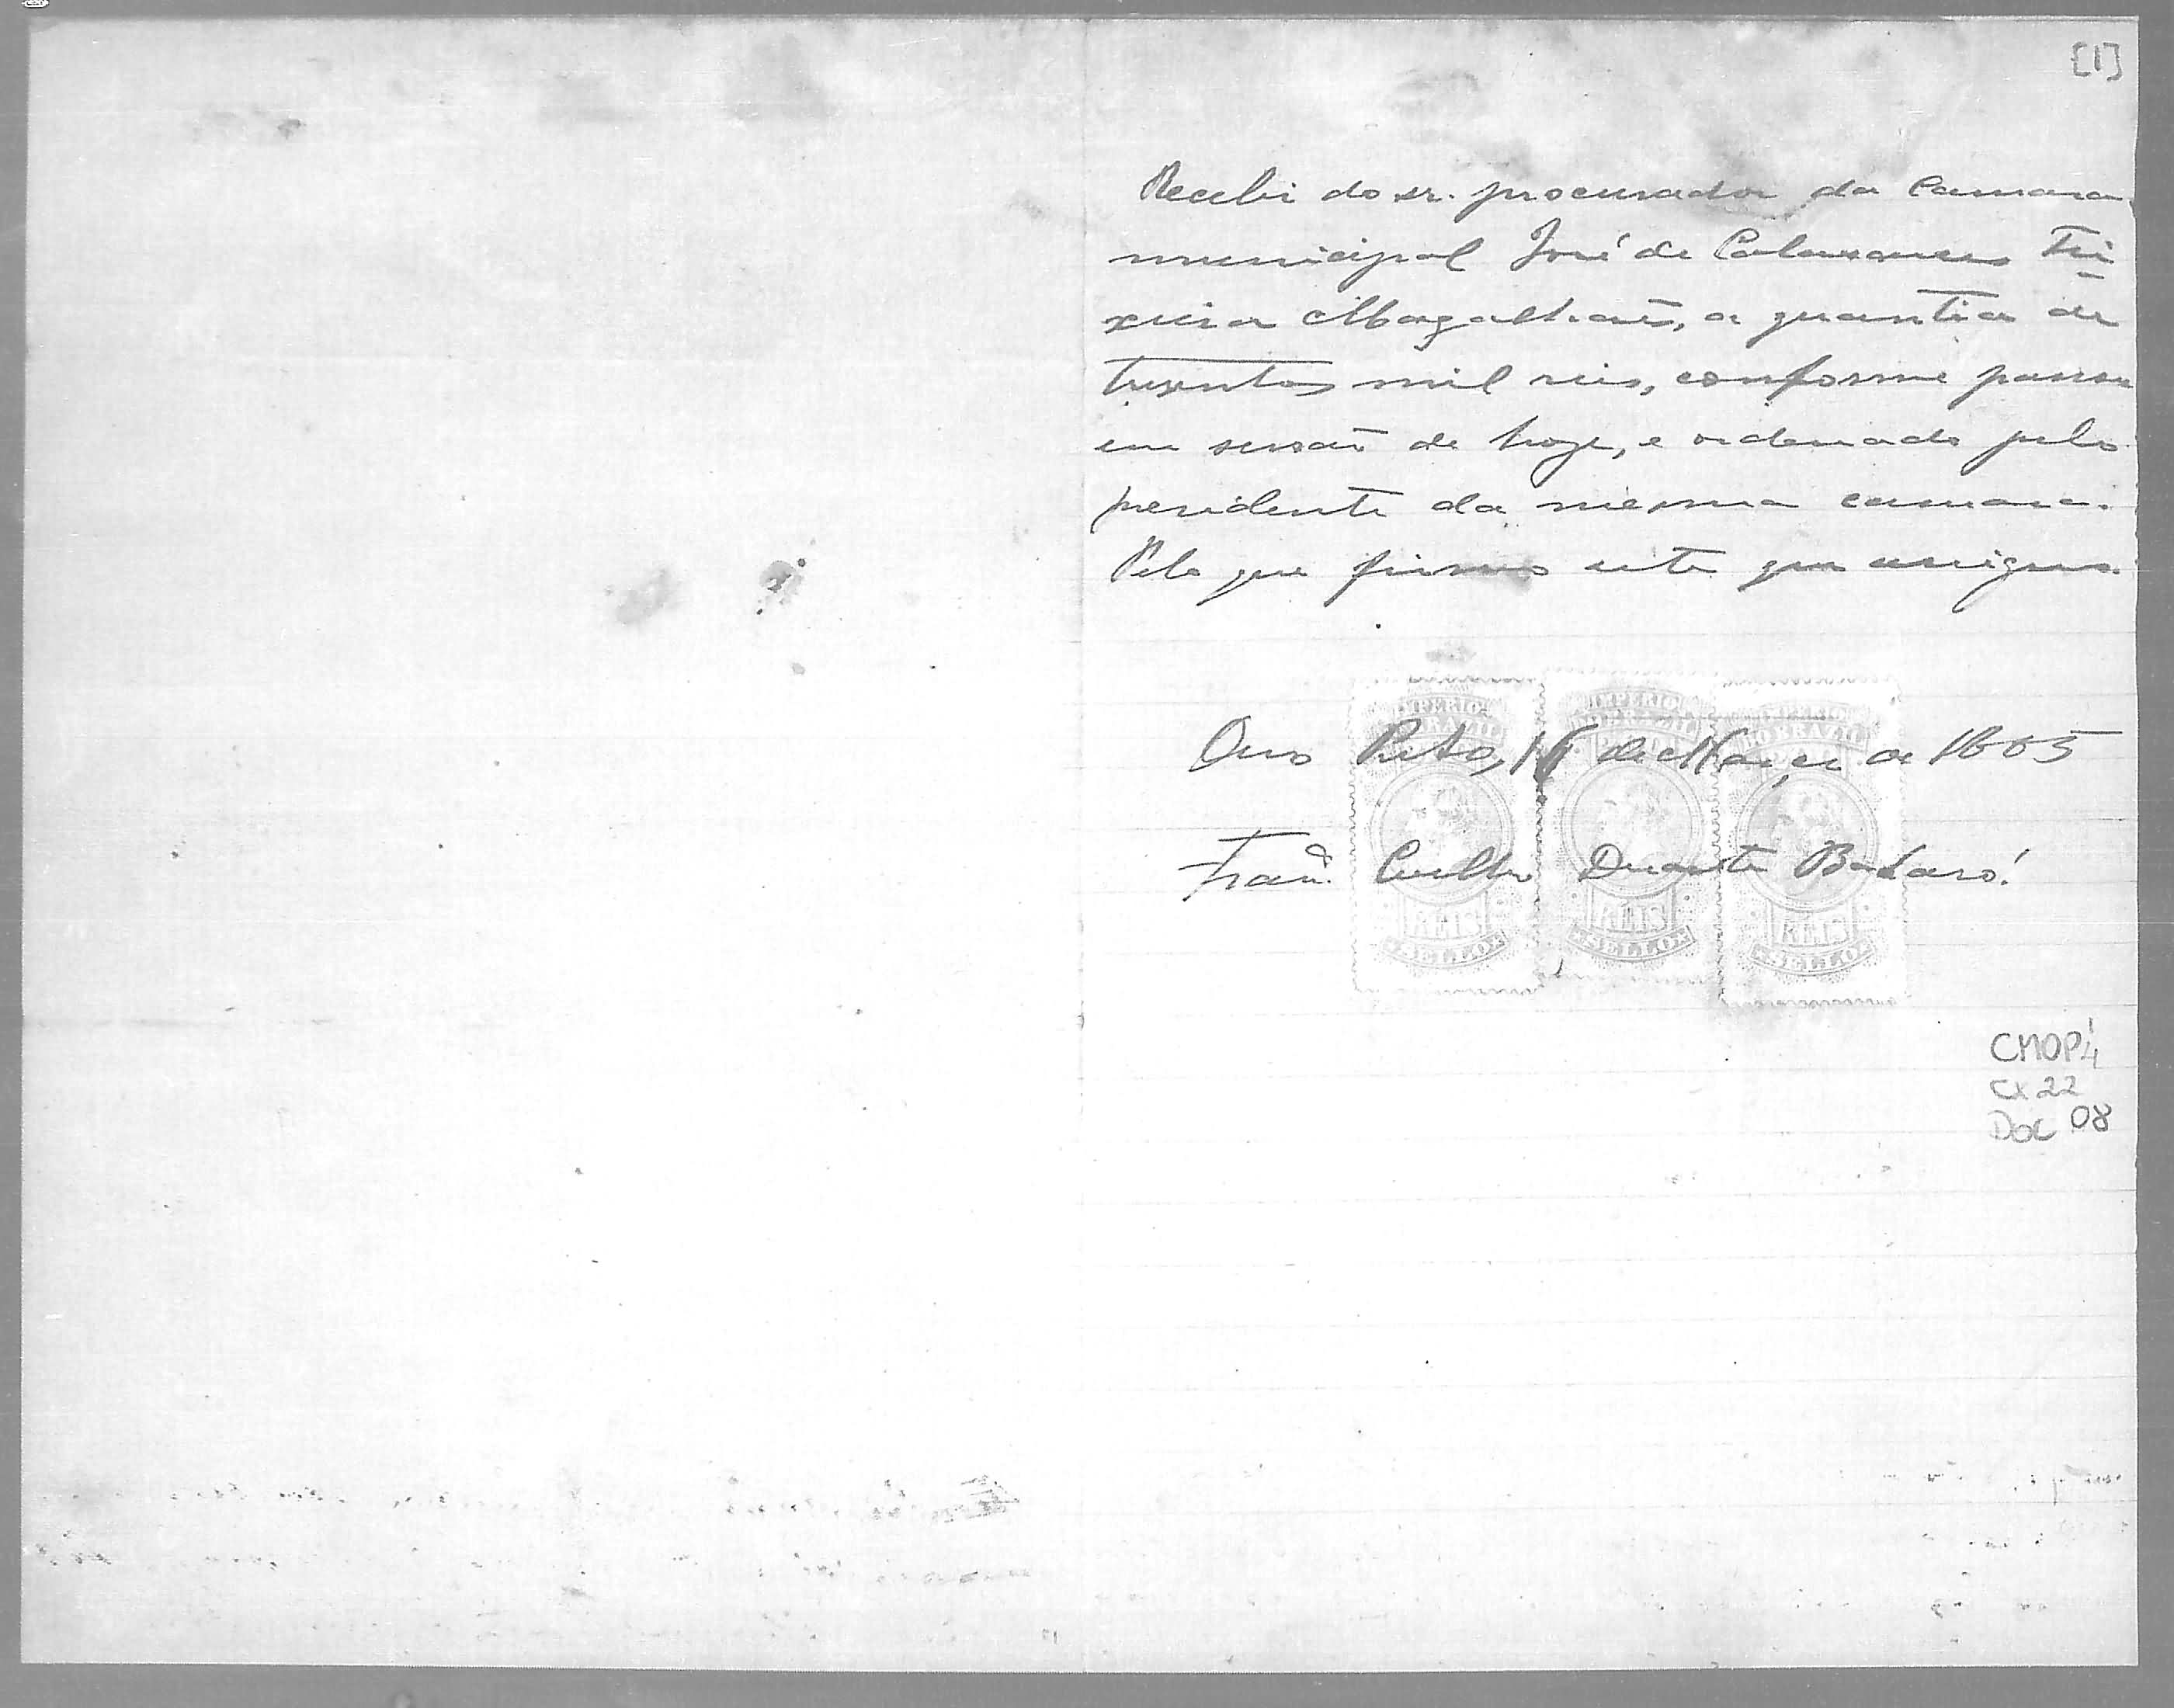 [1]
Recebi do sr. procurador da Camara
municipal José de Calasances Tei-
xeira Magalhães, a quantia de
tresentos mil reis, conforme passou
em sessão de hoje, e ordenado pelo
presidente da mesma camara.
Pelo que firmo este que assigno.
IMPERIO DO BRAZIL IMPERIO DO BRAZIL IMPERIO DO BRAZIL
Ouro Preto, de Março de 1885
Franco. Coelho Duarte Badaró.
REIS REIS REIS
SELLO SELLO SELLO
CMOP 4
CX 22
DOC 08